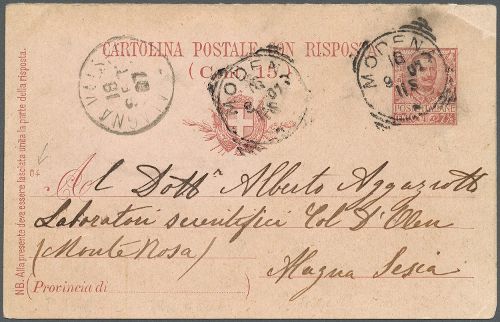 CARTOLINA POSTALE CON RISPOSTA
(CENT. 15)
MODENA
MODENA
POSTE ITALIANE
Al Dottr Alberto Aggazzotti
Laboratori scientifici Col D'Olen
(Monte Rosa)
Alagna Sesia
(Provincia di
NB. Alla presente deve essere lasciata unita la parte della risposta.